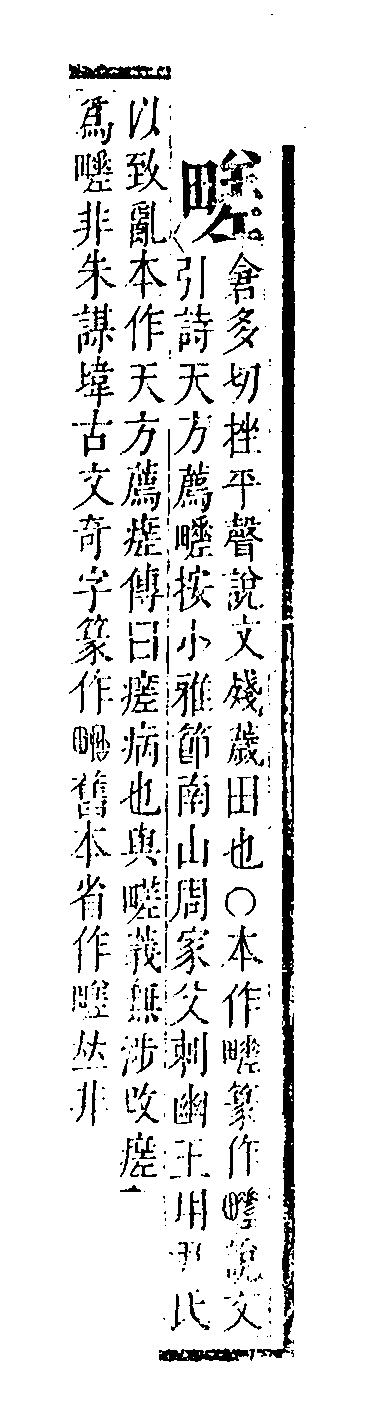 㽨
倉多切挫平聲說文殘薉田也〇本作㽨篆作㽨說文
引詩天方薦㽨按小雅節南山周家父刺幽王用尹氏
以致亂本作天方薦瘥傳曰瘥病也與㽨義無涉改瘥
爲㽨非朱謀㙔古文奇字篆作㽨舊本省作㽨𠀤非